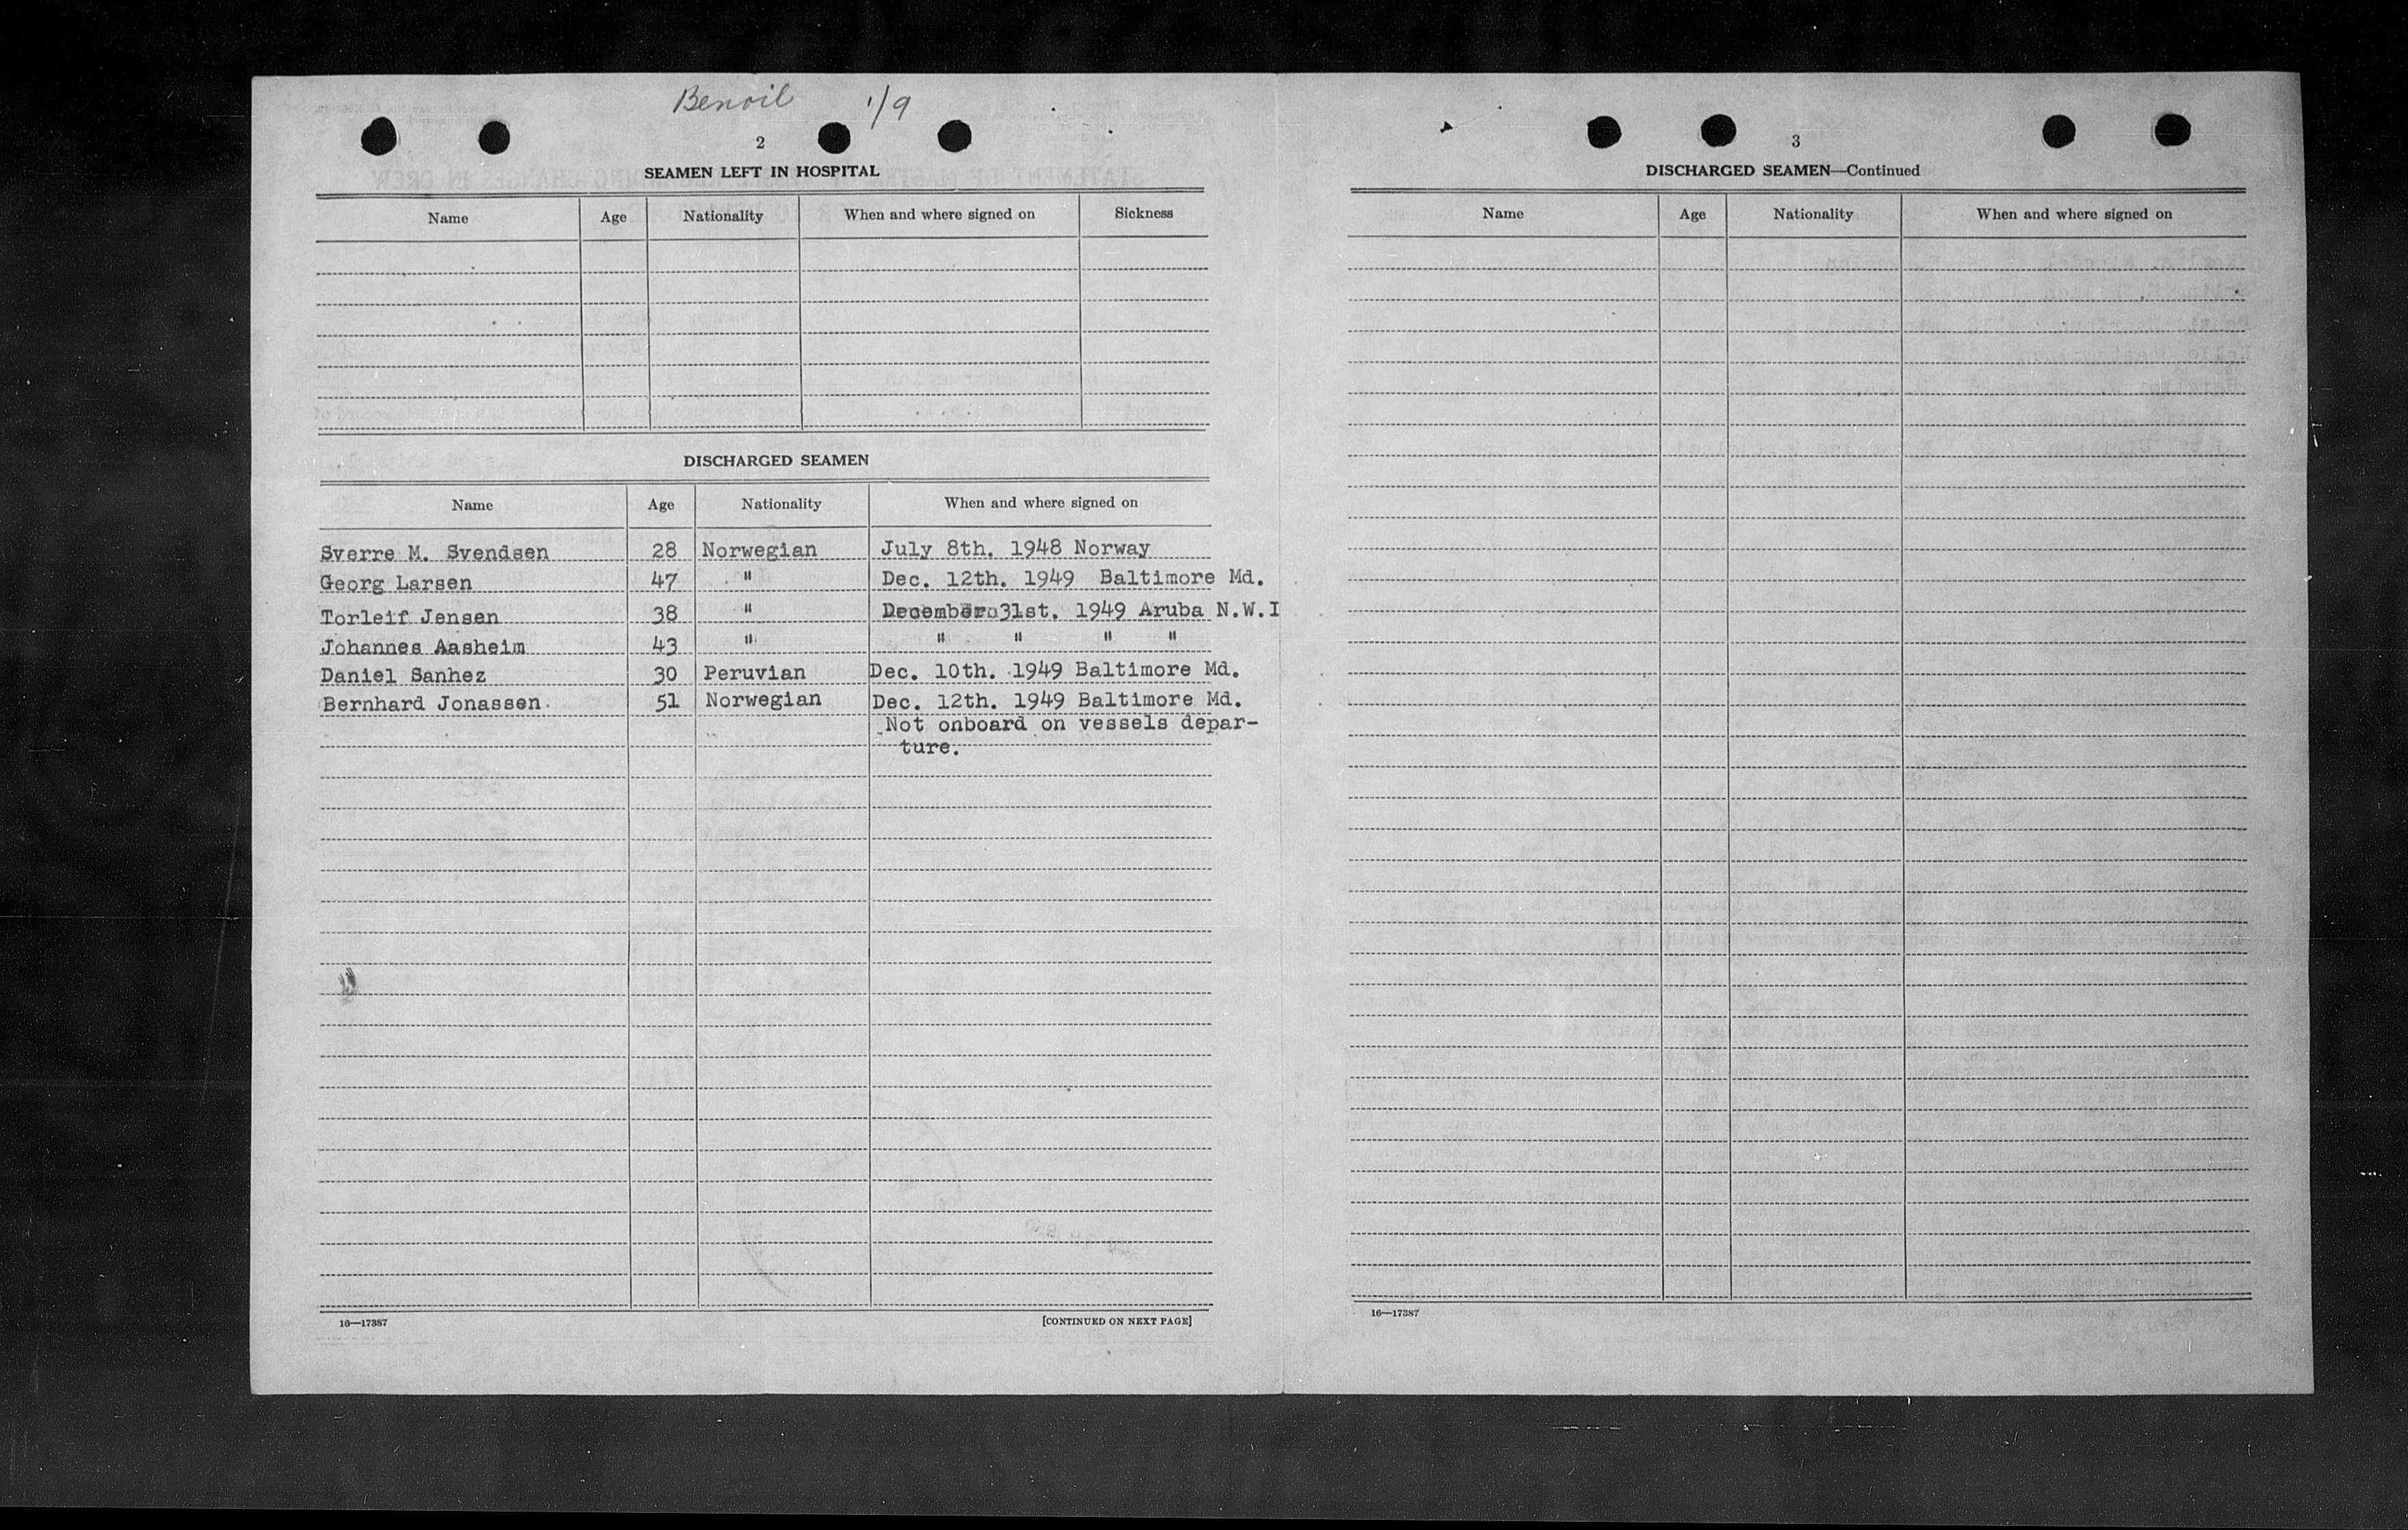 Benoil 1/9
2
SEAMEN LEFT IN HOSPITAL
Name Age Nationality When and where signed on Sickness
DISCHARGED SEAMEN
Name Age Nationality When and where signed on
Sverre M. Svendsen 28 Norwegian July 8th. 1948 Norway
Georg Larsen 47 " Dec. 12th. 1949 Baltimore Md.
Torleif Jensen 38 " December 31st. 1949 Aruba N.W.I
Johannes Aasheim 43 " " " " "
Daniel Sanhez 30 Peruvian Dec. 10th. 1949 Baltimore Md.
Bernhard Jonassen 51 Norwegian Dec. 12th. 1949 Baltimore Md.
Not onboard on vessels depar-
ture.
16—17387 [CONTINUED ON NEXT PAGE]
3
DISCHARGED SEAMEN—Continued
Name Age Nationality When and where signed on
16—17387